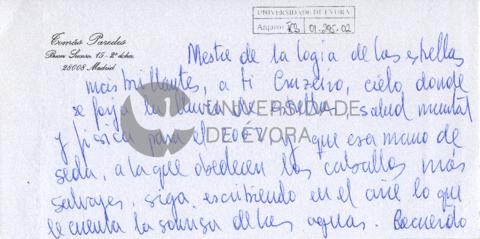 UNIVERSIDADE DE ÉVORA
Arquivo RB 01.295.02
Tomás Paredes
Buen Suceso, 15 - 2º dcha.
28008 Madrid
Mestre de la logia de las estrellas
más brillantes, a ti Cruzeiro, cielo donde
se forja la lluvia de estrellas, salud mental
y física para el 2002 y que esa mano de
seda, a la que obedecen los caballos más
salvajes, siga escribiendo en el aire lo que
le cuenta la sonrisa de las aguas. Recuerdo
UNIVERSIDADE
DE ÉVORA